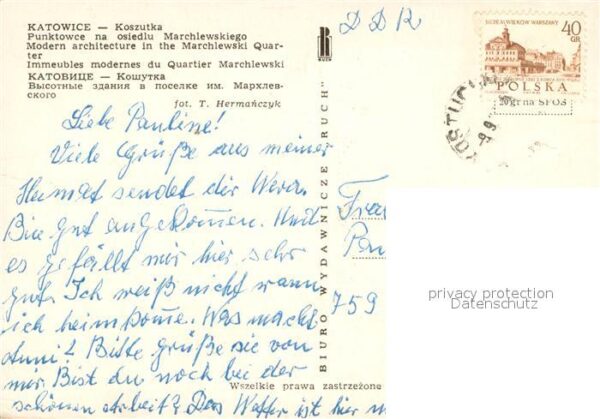 KATOWICE — Koszutka
Punktowce na osiedlu Marchlewskiego
Modern architecture in the Marchlewski Quar-
ter
Immeubles modernes du Quartier Marchlewski
КАТОВИЦЕ — Кошутка
Высотные здания в поселке им. Мархлев-
ского
fot. T. Hermańczyk
Liebe Pauline!
Viele Grüße aus meiner
Heimat sendet dir Wera.
Bin gut angekommen. Und
es gefällt mir hier sehr
gut. Ich weiß nicht wann
ich heimkomme. Was macht
? Bitte grüße sie von
mir. Bist du noch bei der
schönen Arbeit? Das Wetter ist hier
BIURO WYDAWNICZE „RUCH”
Wszelkie prawa zastrzeżone
DDR
SIEDEM WIEKÓW WARSZAWY
40
GR
POLSKA
gr na SFOS
KOSTUCHNA
Frau
759
privacy protection
Datenschutz